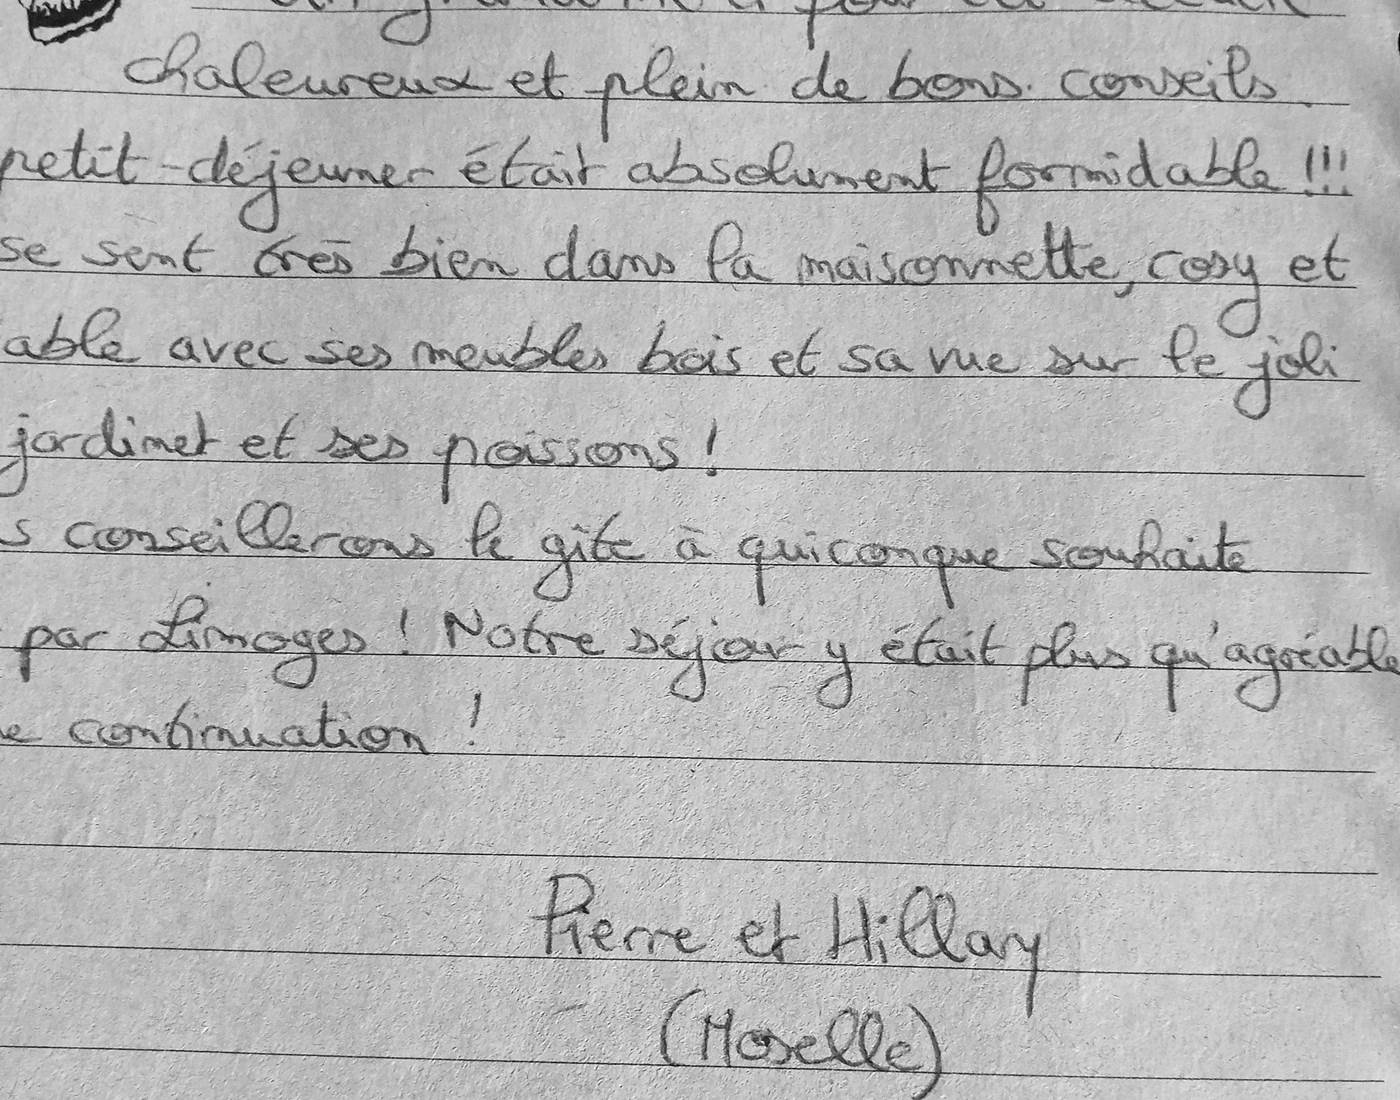 chaleureux et plein de bons conseils.
petit-déjeuner était absolument formidable !!!
se sent très bien dans la maisonnette, cosy et
able avec ses meubles bois et sa vue sur le joli
jardinet et ses poissons !
s conseillerons le gîte à quiconque souhaite
par Limoges ! Notre séjour y était plus qu'agréable
e continuation !
Pierre et Hillary
(Moselle)